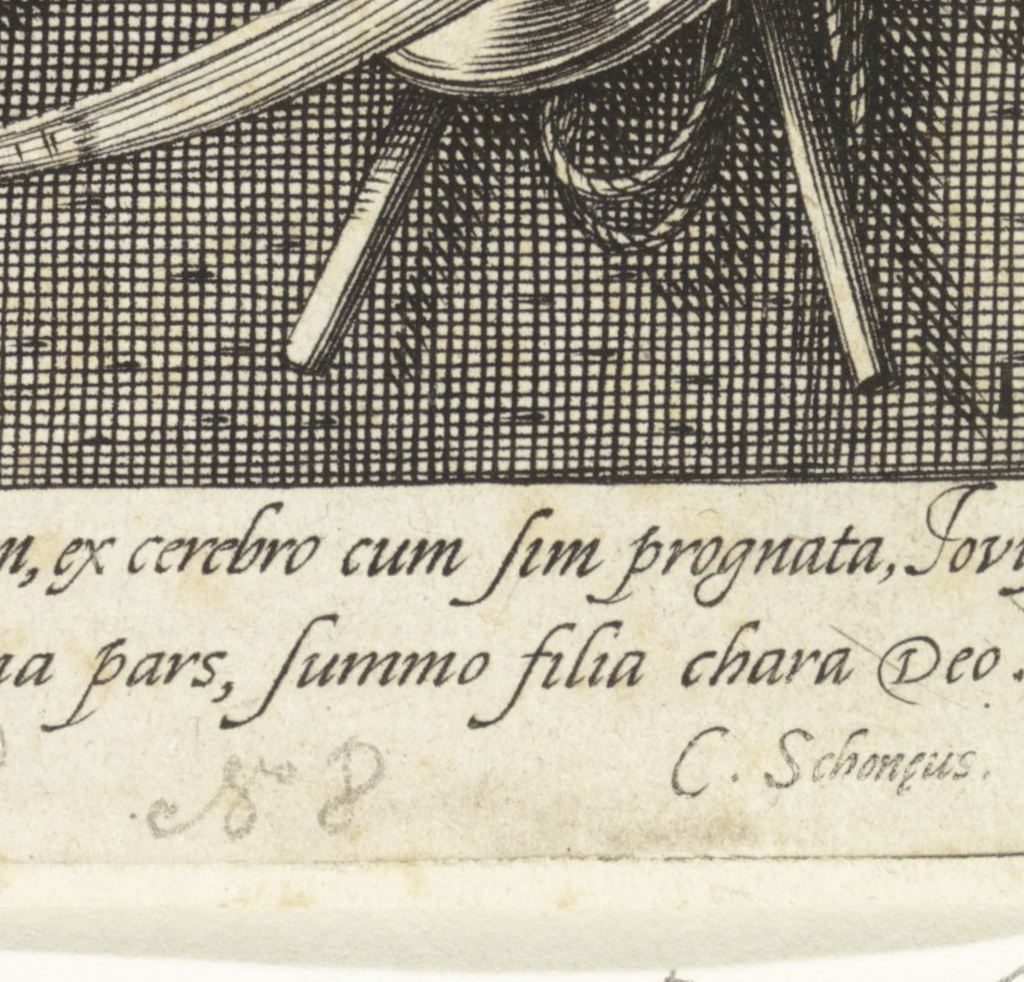 ex cerebro cum sim prognata,
pars, summo filia chara Deo.
C. Schonęus.